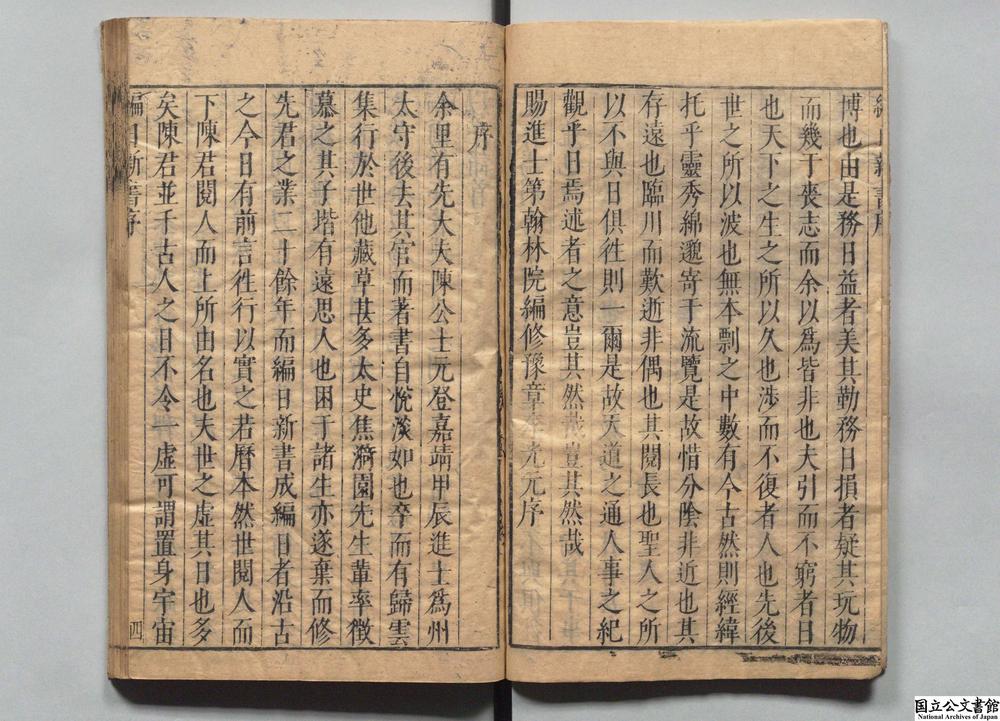 博也由是務日益者美其勤務日損者疑其玩物
而幾于喪志而余以爲皆非也夫引而不窮者日
也天下之生之所以久也涉而不復者人也先後
世之所以波也無本剽之中數有今古然則經緯
托乎靈秀綿邈寄于流覽是故惜分陰非近也其
存遠也臨川而歎逝非偶也其閱長也聖人之所
以不與日俱徃則一爾是故天道之通人事之紀
觀乎日焉述者之意豈其然哉豈其然哉
賜進士第翰林院編修豫章李光元序
序
余里有先大夫陳公士元登嘉靖甲辰進士爲州
太守後去其官而著書自悅淡如也卒而有歸雲
集行於世他藏草甚多太史焦漪園先生輩率徴
慕之其子堦有遠思人也困于諸生亦遂棄而修
先君之業二十餘年而編日新書成編日者沿古
之今日有前言徃行以實之若曆本然世閱人而
下陳君閱人而上所由名也夫世之虛其日也多
矣陳君並千古人之目不令一虛可謂置身宇宙
編日新書序
四
国立公文書館
National Archives of Japan